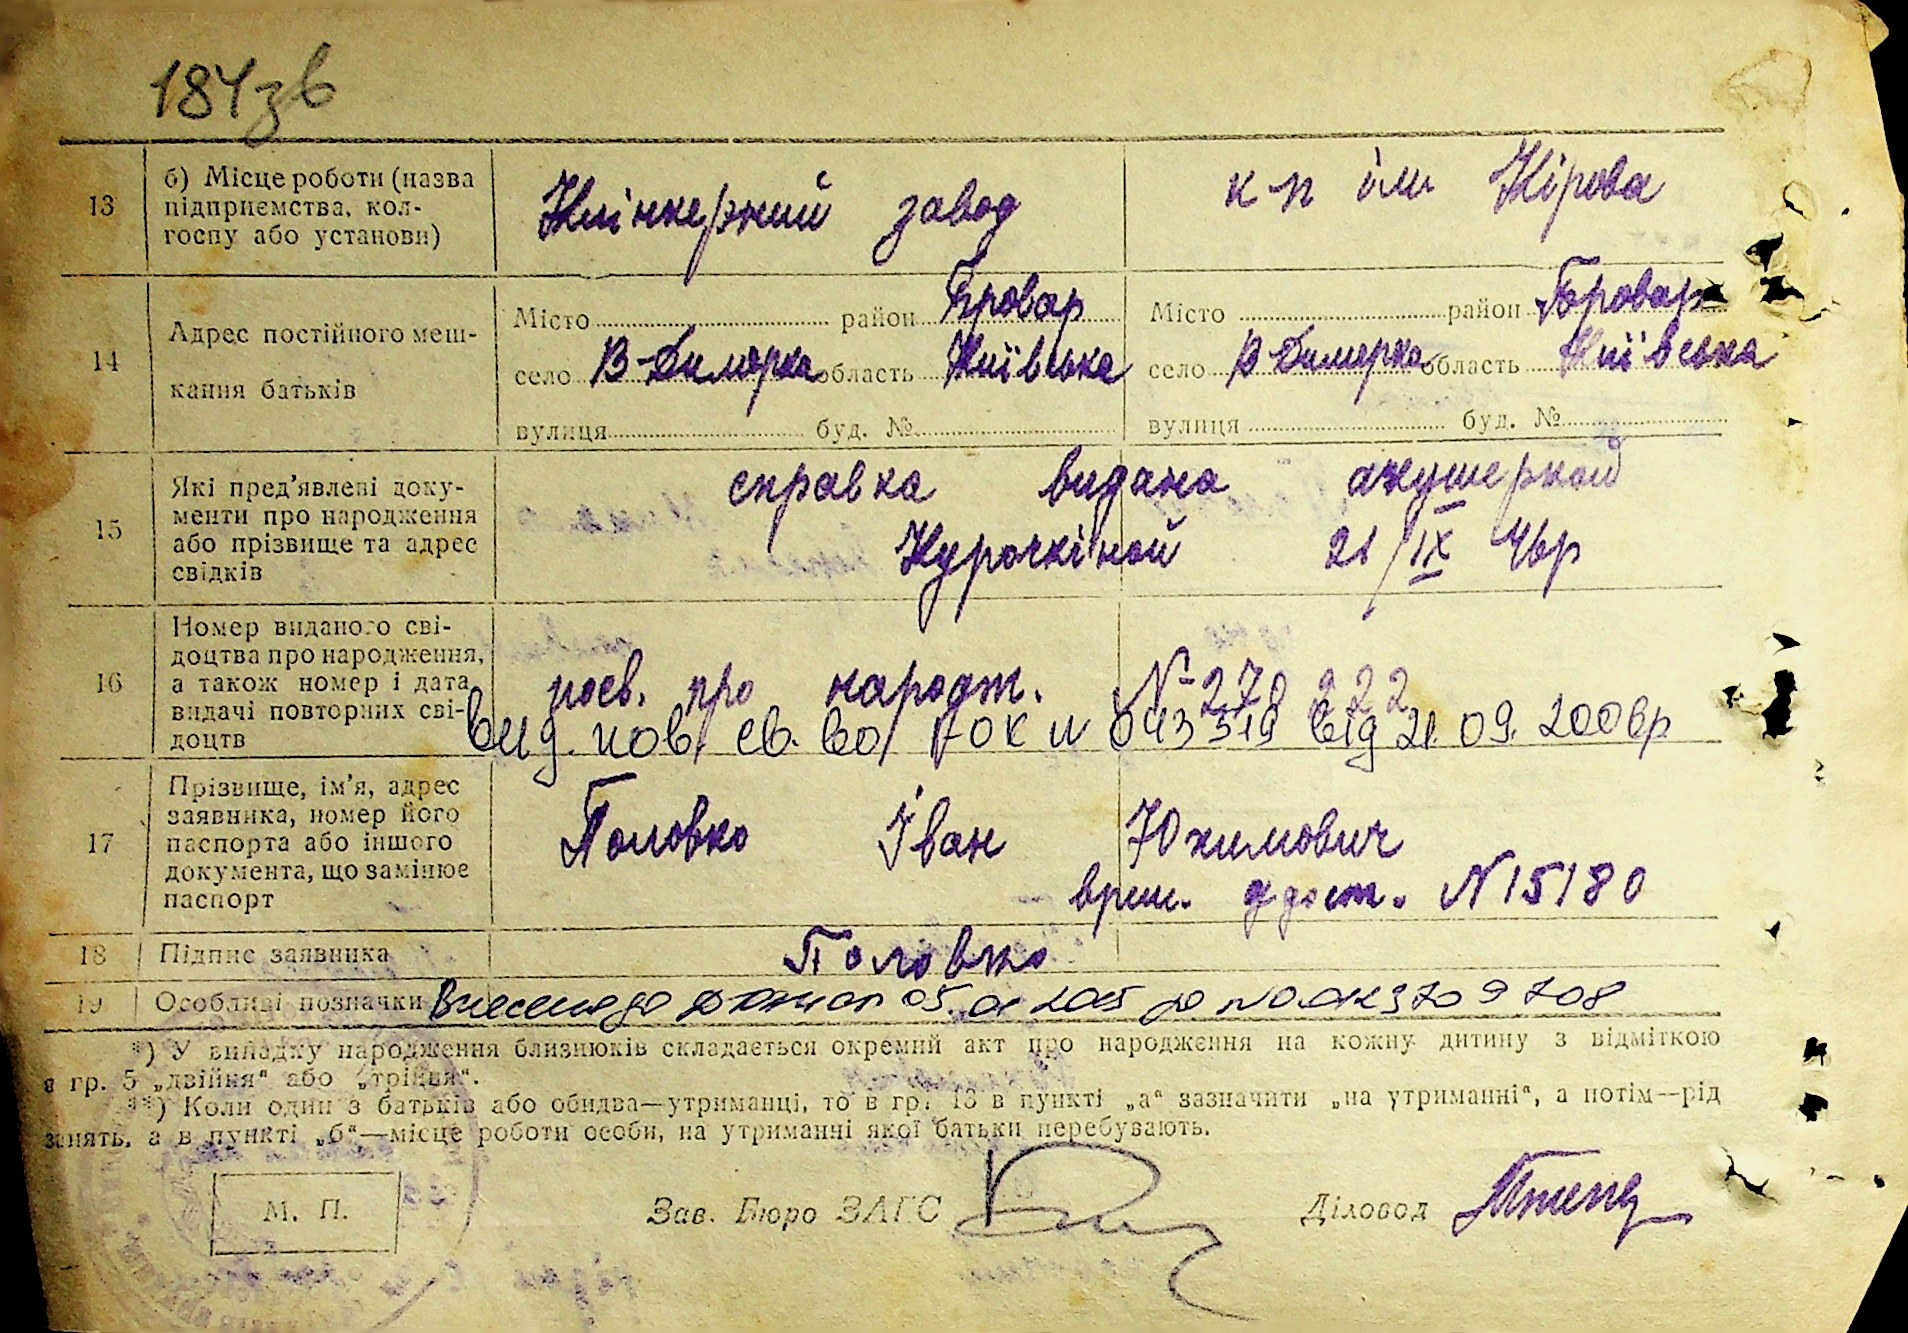 184зв
13 б) Місце роботи (назва підприємства, кол-госпу або установи) Клінкерний завод к п ім Кірова
14 Адрес постійного меш-кання батьків
Місто район Бровар Місто район Бровар
село В-Димерка область Київська село В Димерка область Київська
вулиця буд. № вулиця буд. №
15 Які пред'явлені доку-менти про народження або прізвище та адрес свідків
справка видана акушеркой
Курочкіной 21/IX 46р
16 Номер виданого сві-доцтва про народження, а також номер і дата видачі повторних сві-доцтв
посв. про народж. № 270 222
вид. пов. св. во ОК № 043319 від 21.09.2006р
17 Прізвище, ім'я, адрес заявника, номер його паспорта або іншого документа, що замінює паспорт
Половко Іван Юхимович
врем. удост. N 15180
18 Підпис заявника Половко
19 Особливі позначки
*) У випадку народження близнюків складається окремий акт про народження на кожну дитину з відміткою
в гр. 5 „двійня“ або „трійня“.
**) Коли один з батьків або обидва—утриманці, то в гр. 13 в пункті „а“ зазначити „на утриманні“, а потім—рід
занять, а в пункті „б“—місце роботи особи, на утриманні якої батьки перебувають.
М. П. Зав. Бюро ЗАГС Діловод